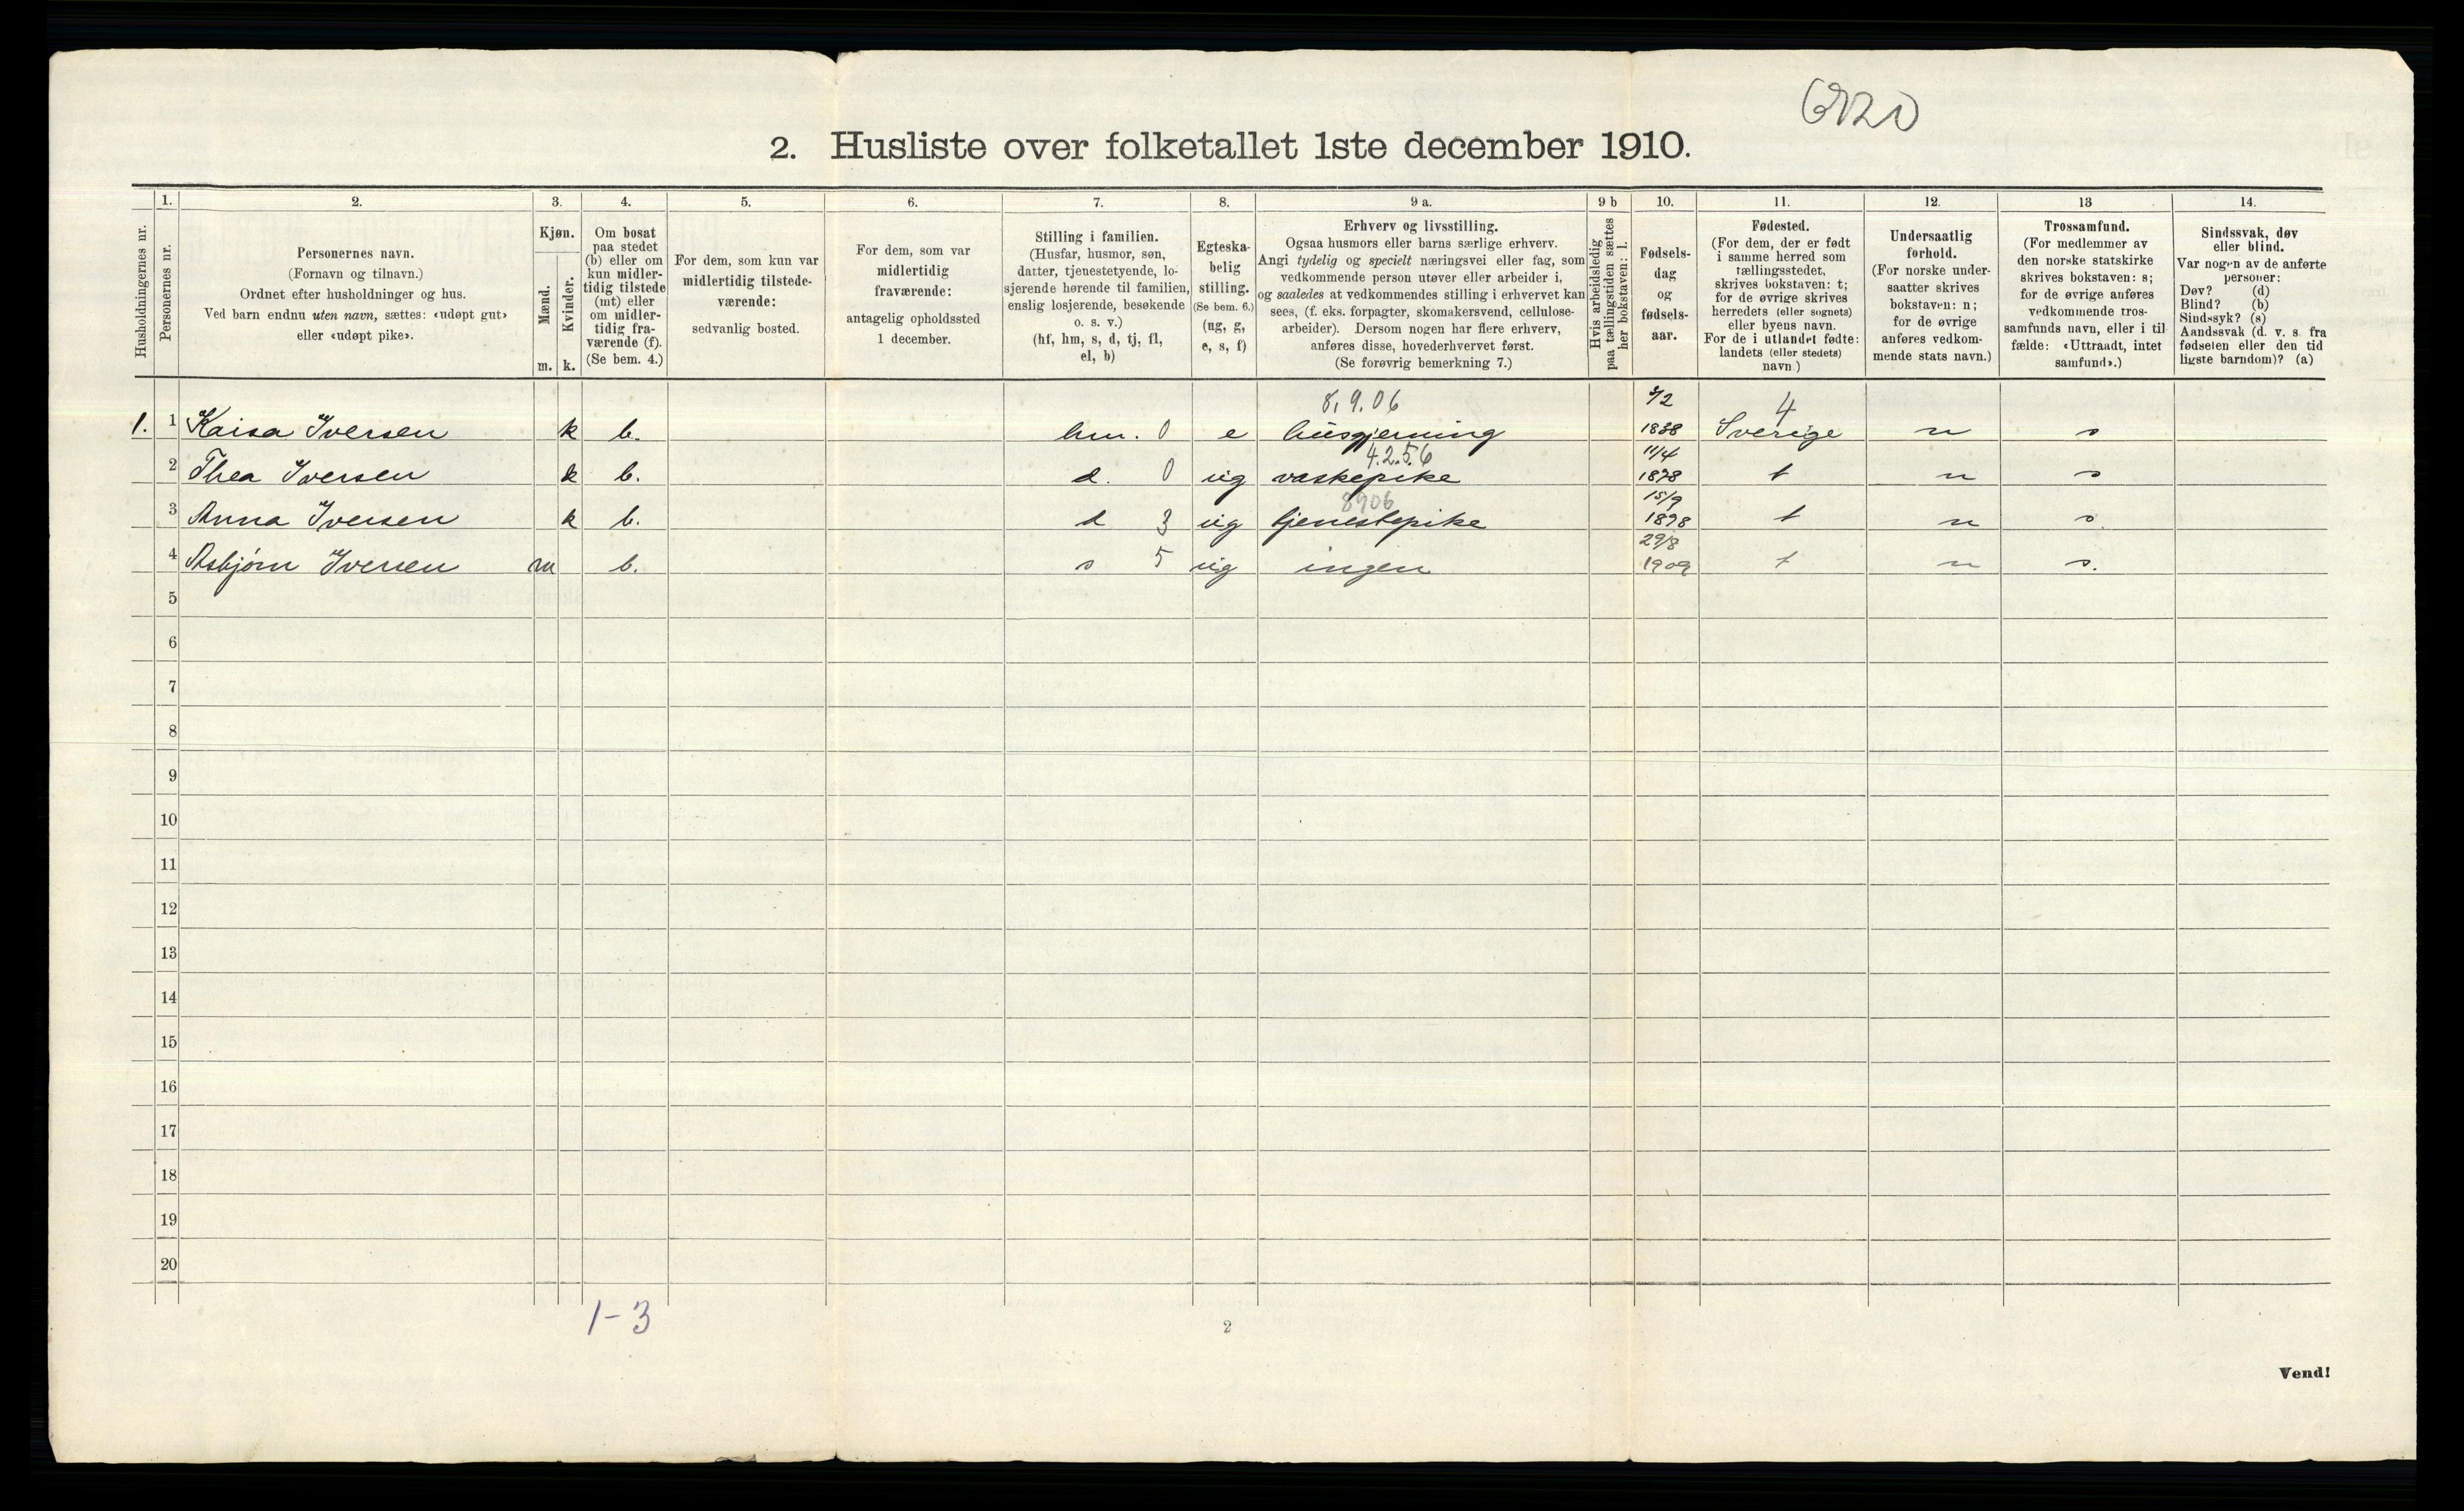 6820
2. Husliste over folketallet 1ste december 1910.
Husholdningernes nr.
1.
Personernes nr.
2.
Personernes navn.
(Fornavn og tilnavn.)
Ordnet efter husholdninger og hus.
Ved barn endnu uten navn, sættes: «udøpt gut»
eller «udøpt pike».
3.
Kjøn.
Mænd.
Kvinder.
m. k.
4.
Om bosat
paa stedet
(b) eller om
kun midler-
tidig tilstede
(mt) eller
om midler-
tidig fra-
værende (f).
(Se bem. 4.)
5.
For dem, som kun var
midlertidig tilstede-
værende:
sedvanlig bosted.
6.
For dem, som var
midlertidig
fraværende:
antagelig opholdssted
1 december.
7.
Stilling i familien.
(Husfar, husmor, søn,
datter, tjenestetyende, lo-
sjerende hørende til familien,
enslig losjerende, besøkende
o. s. v.)
(hf, hm, s, d, tj, fl,
el, b)
8.
Egteska-
belig
stilling.
(Se bem. 6.)
(ug, g,
e, s, f)
9 a.
Erhverv og livsstilling.
Ogsaa husmors eller barns særlige erhverv.
Angi tydelig og specielt næringsvei eller fag, som
vedkommende person utøver eller arbeider i,
og saaledes at vedkommendes stilling i erhvervet kan
sees, (f. eks. forpagter, skomakersvend, cellulose-
arbeider). Dersom nogen har flere erhverv,
anføres disse, hovederhvervet først.
(Se forøvrig bemerkning 7.)
9 b
Hvis arbeidsledig
paa tællingstiden sættes
her bokstaven: l.
10.
Fødsels-
dag
og
fødsels-
aar.
11.
Fødested.
(For dem, der er født
i samme herred som
tællingsstedet,
skrives bokstaven: t;
for de øvrige skrives
herredets (eller sognets)
eller byens navn.
For de i utlandet fødte:
landets (eller stedets)
navn.)
12.
Undersaatlig
forhold.
(For norske under-
saatter skrives
bokstaven: n;
for de øvrige
anføres vedkom-
mende stats navn.)
13
Trossamfund.
(For medlemmer av
den norske statskirke
skrives bokstaven: s;
for de øvrige anføres
vedkommende tros-
samfunds navn, eller i til
fælde: «Uttraadt, intet
samfund».)
14.
Sindssvak, døv
eller blind.
Var nogen av de anførte
personer:
Døv? (d)
Blind? (b)
Sindssyk? (s)
Aandssvak (d. v. s. fra
fødselen eller den tid
ligste barndom)? (a)
8.9.06 4
1. 1 Kaisa Iversen k b. hm. 0 e husgjerning 1838 Sverige n s
4.2.5.6 11/4
2 Thea Iversen k b. d. 0 ug vaskepike 1878 t n s
8906 15/9
3 Anna Iversen k b. d 3 ug tjenestepike 1898 t n s.
29/8
4 Asbjørn Iversen m b. s 5 ug ingen 1909 t n s.
5
6
7
8
9
10
11
12
13
14
15
16
17
18
19
20
1-3
2
Vend!